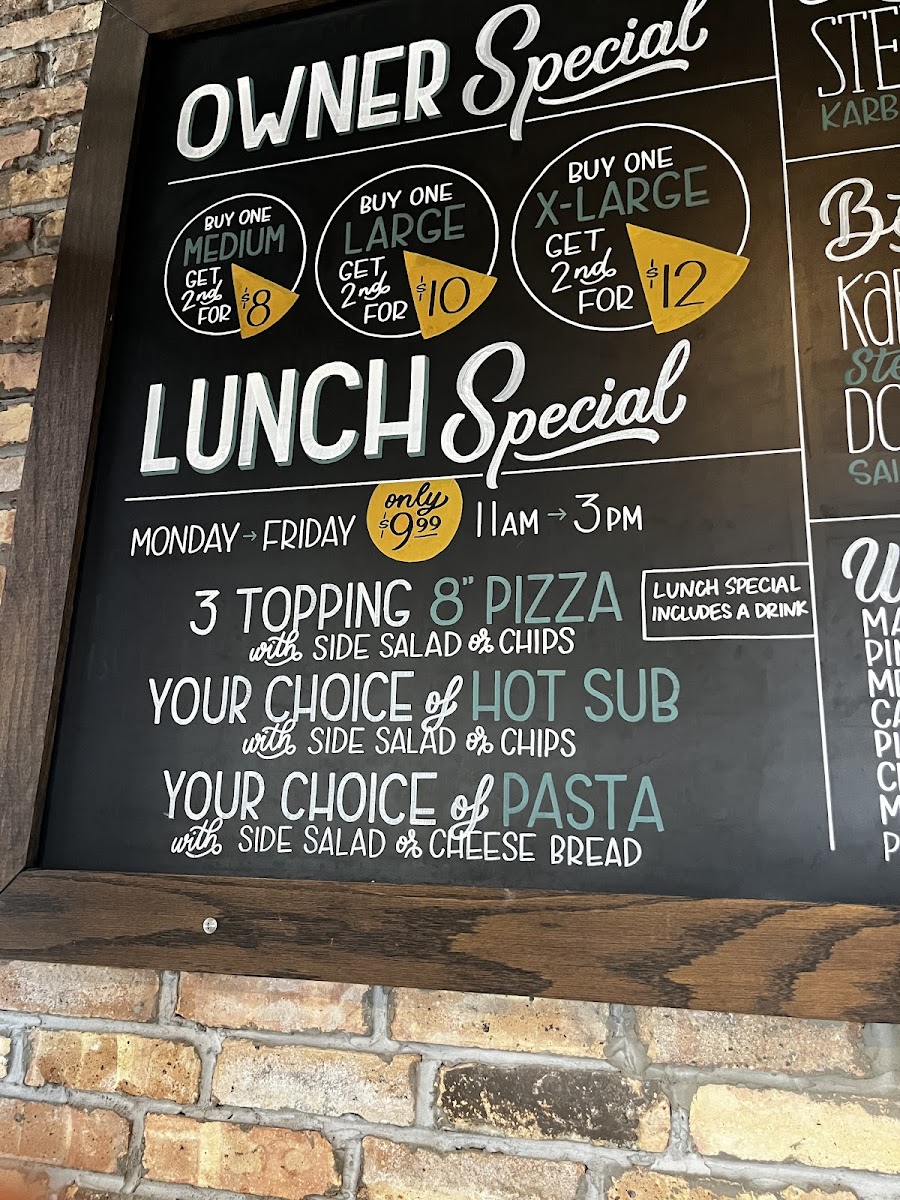 OWNER Special
BUY ONE
MEDIUM
GET
2nd
FOR
$8
BUY ONE
LARGE
GET
2nd
FOR
$10
BUY ONE
X-LARGE
GET
2nd
FOR
$12
LUNCH Special
MONDAY → FRIDAY
only
$9.99
11AM → 3PM
3 TOPPING 8" PIZZA
with SIDE SALAD or CHIPS
LUNCH SPECIAL
INCLUDES A DRINK
YOUR CHOICE of HOT SUB
with SIDE SALAD or CHIPS
YOUR CHOICE of PASTA
with SIDE SALAD or CHEESE BREAD